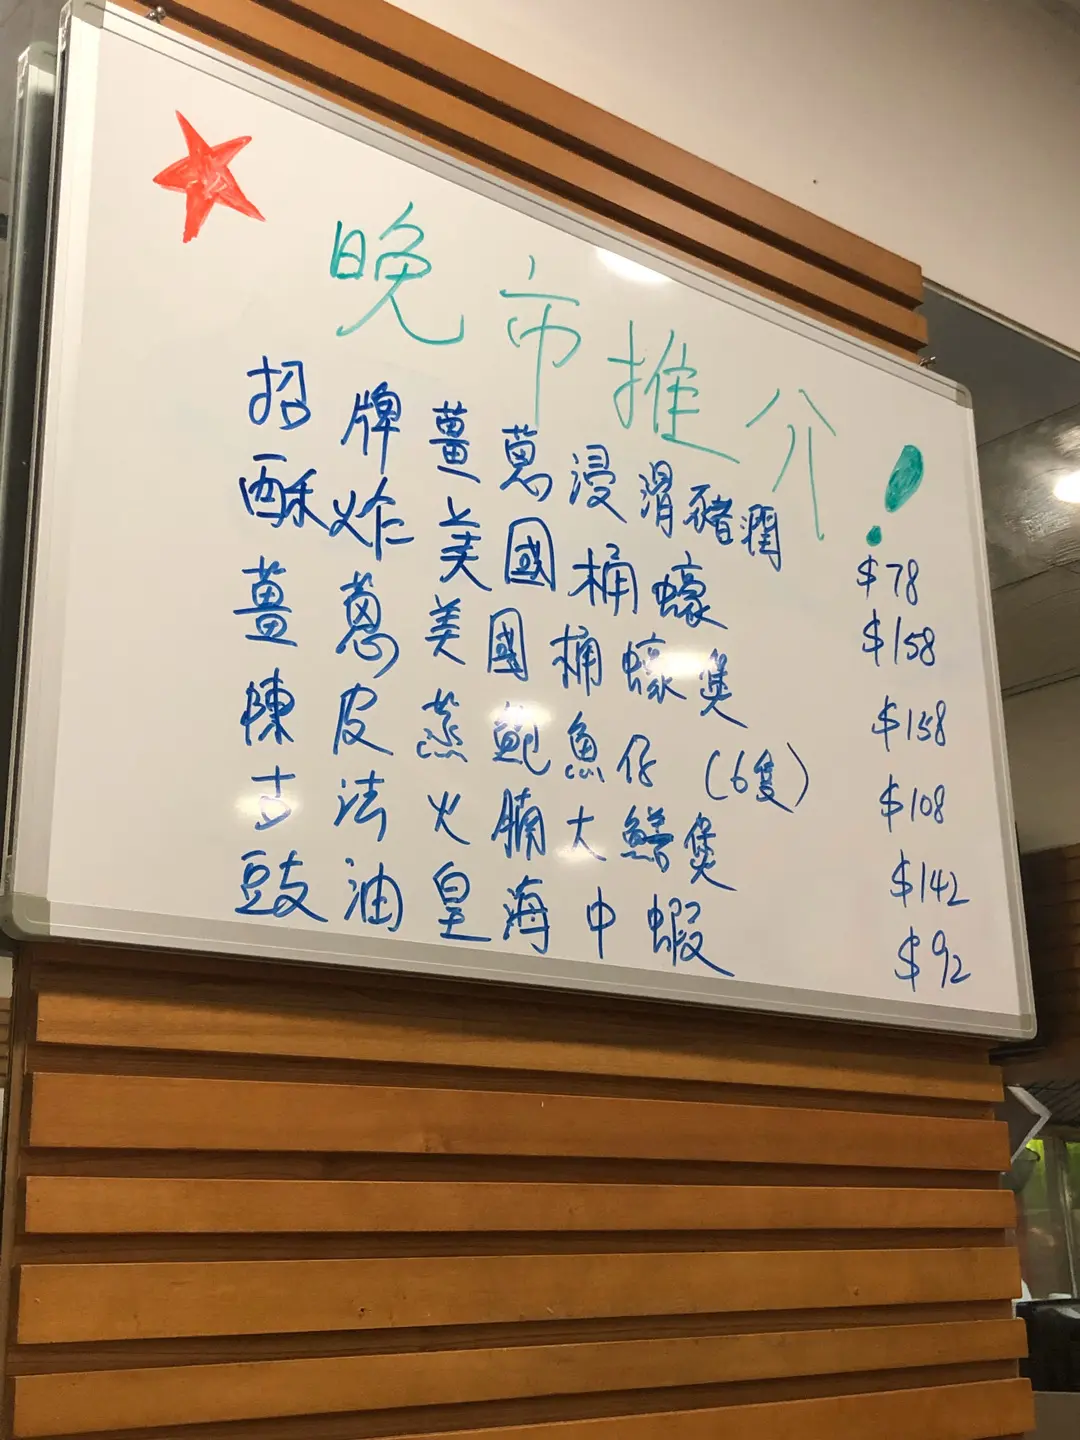 晚市推介！
招牌薑蔥浸滑豬潤 $78
酥炸美國桶蠔 $158
薑蔥美國桶蠔煲 $158
陳皮蒸鮑魚仔（6隻） $108
古法火腩大鱔煲 $142
豉油皇海中蝦 $92